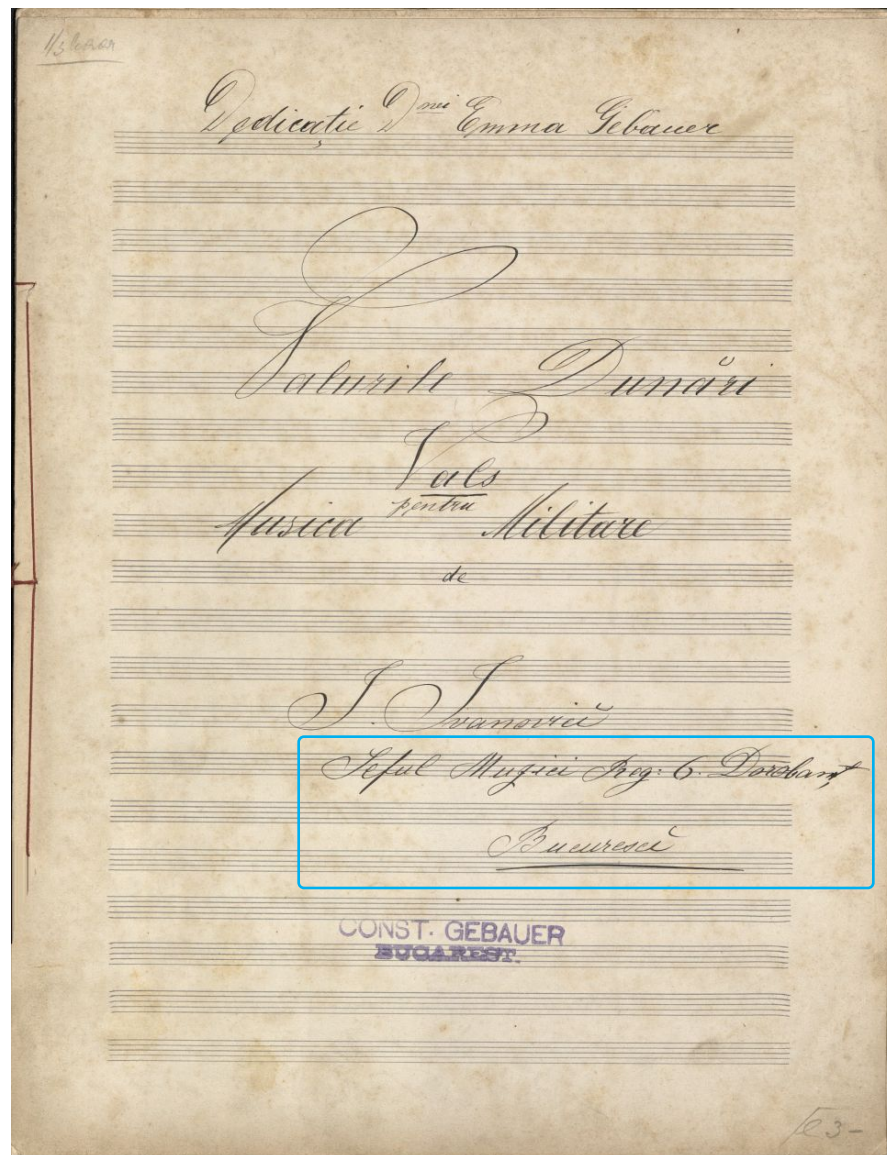 Dedicație Dnei Emma Gebauer
Valurile Dunări
Vals
pentru
Musica Militare
de
I. Ivanovicĭ
Șeful Muzici Reg: 6. Dorobanț
Bucurescĭ
CONST. GEBAUER
BUCAREST.